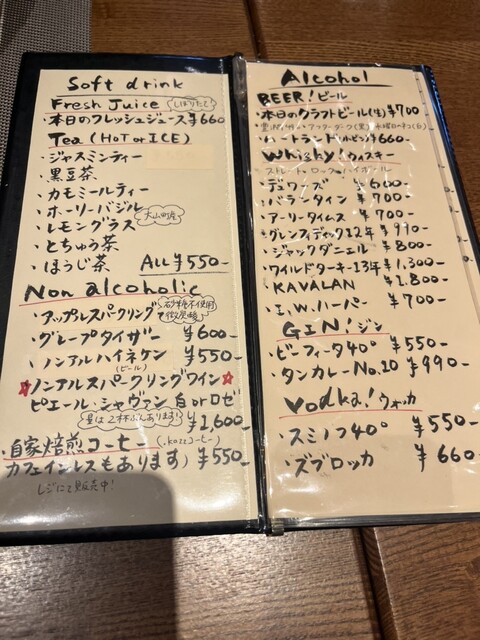 Soft drink
Fresh Juice しぼりたて
・本日のフレッシュジュース ¥660
Tea (HOT or ICE)
・ジャスミンティー
・黒豆茶
・カモミールティー
・ホーリーバジル
・レモングラス 大山町産
・とちゅう茶
・ほうじ茶 ALL ¥550-
Non alcoholic
・アップルスパークリング 砂糖不使用 微炭酸
・グレープタイザー ¥600-
・ノンアルハイネケン ¥550-
(ビール)
☆ノンアルスパークリングワイン☆
ピエール・シャヴァン 白 or ロゼ
¥1,600-
・自家焙煎コーヒー
カフェインレスもあります) ¥550-
レジにて販売中!
Alcohol
BEER! ビール
・本日のクラフトビール(生) ¥700
・ハートランド ¥660-
Whisky! ウィスキー
ストレート・ロック・ハイボール
・デュワーズ ¥600-
・バランタイン ¥700-
・アーリータイムス ¥700-
・グレンフィディック12年 ¥990-
・ジャックダニエル ¥800-
・ワイルドターキー13年 ¥1,300-
・KAVALAN ¥1,800-
・I.W.ハーパー ¥700-
GIN! ジン
・ビーフィータ40° ¥550-
・タンカレーNo.10 ¥990-
Vodka! ウォッカ
・スミノフ40° ¥550-
・ズブロッカ ¥660-